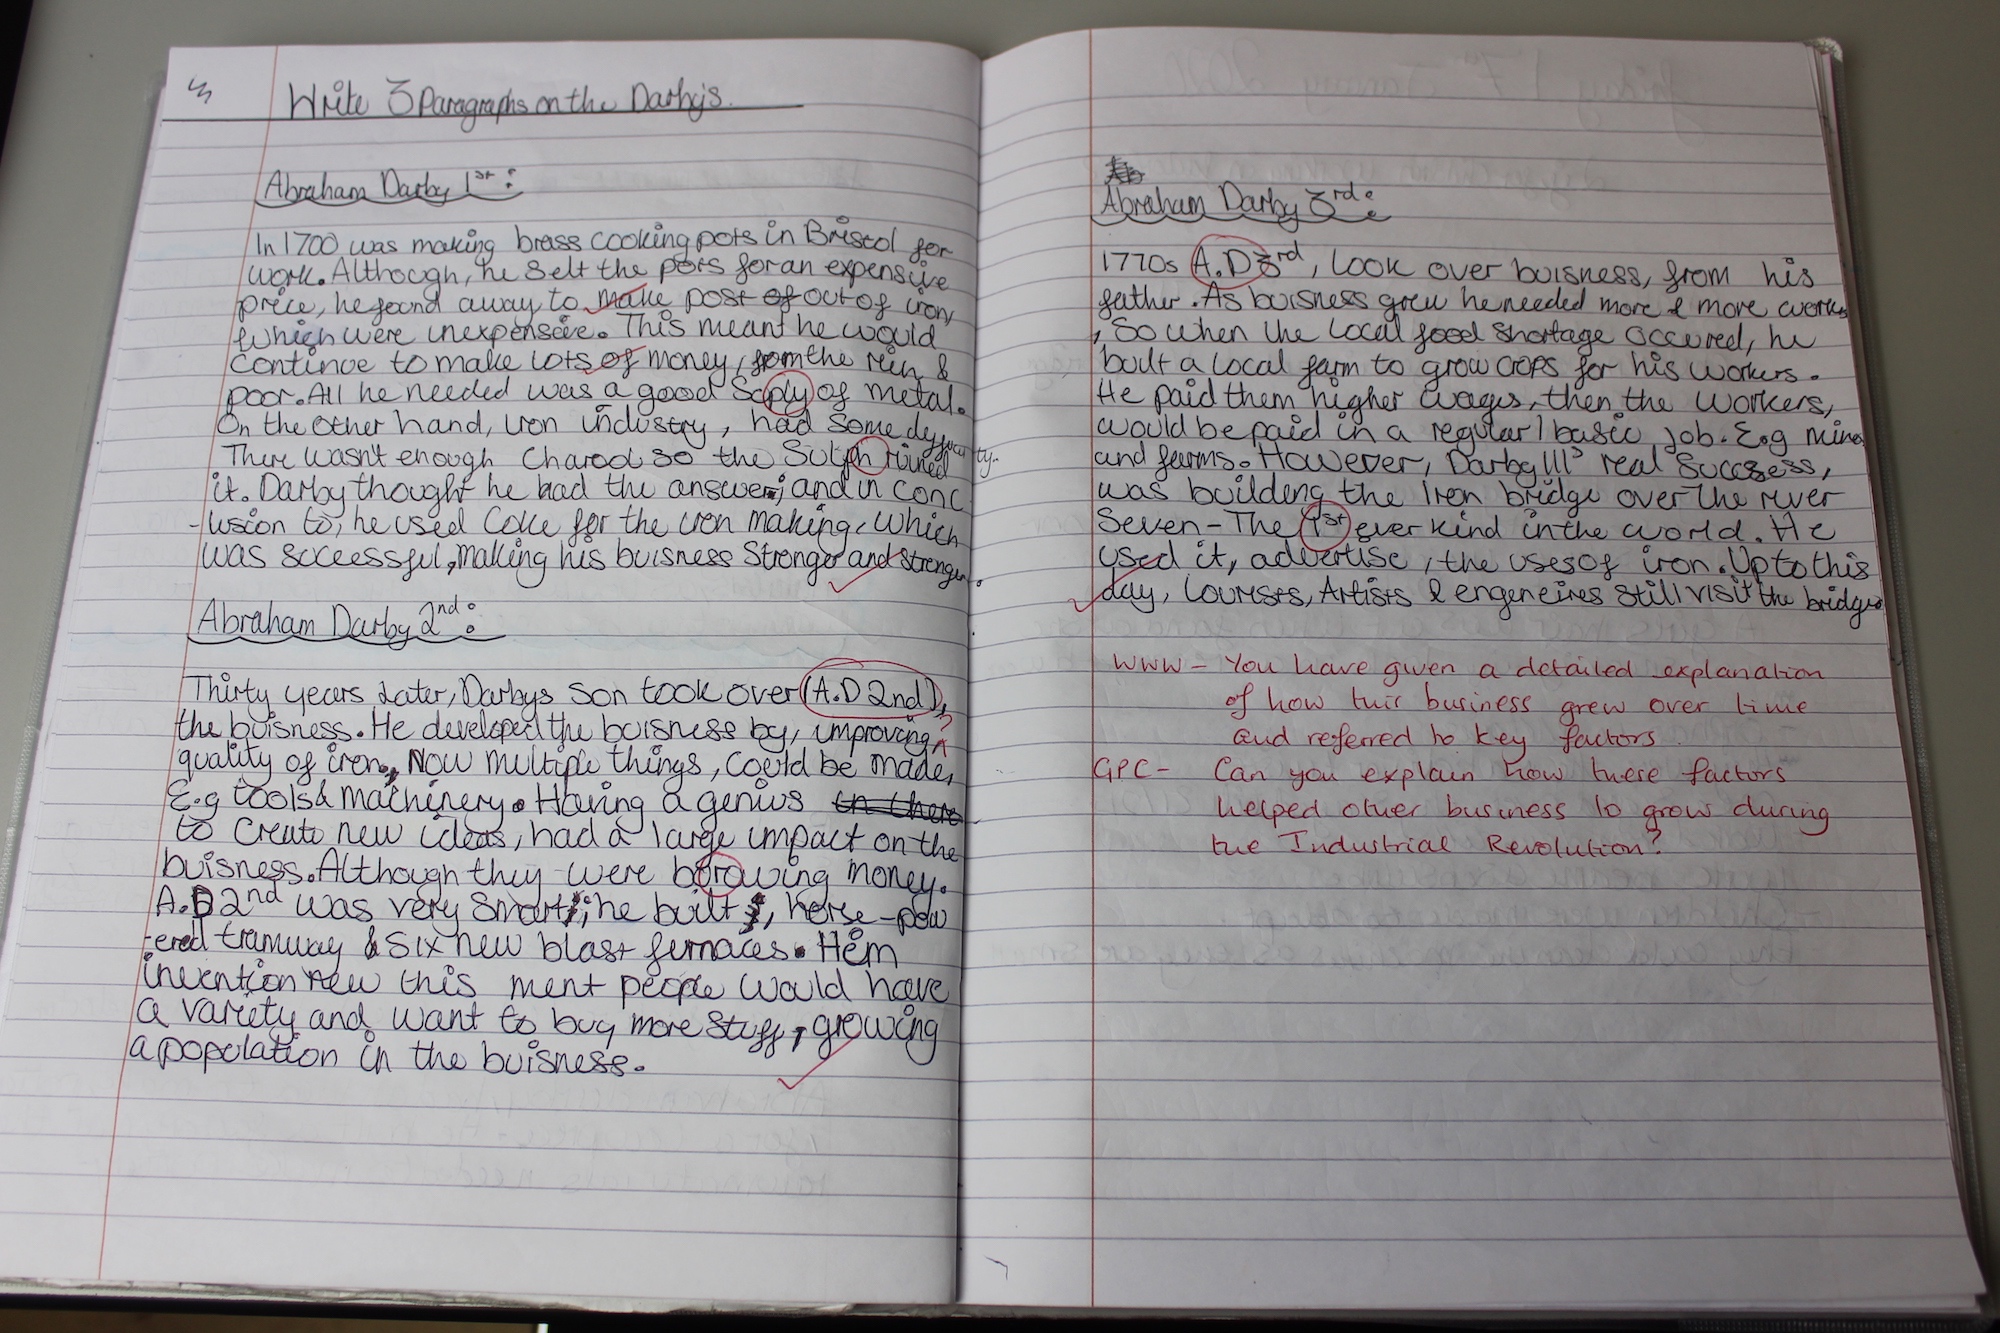 Write 3 Paragraphs on the Darby's.
Abraham Darby 1st :
In 1700 was making brass cooking pots in Bristol for
work. Although, he selt the pots for an expensive
price, he found away to make post of out of iron,
which were inexpensive. This meant he would
continue to make lots of money, from the rich &
poor. All he needed was a good Scply of metal.
On the other hand, iron industry, had some
There wasn't enough Charcol so the Sulph ruined
it. Darby thought he had the answer; and in conc
-lusion to, he used Coke for the iron making. Which
was successful, making his buisness Stronger and stronger.
Abraham Darby 2nd :
Thirty years Later, Darbys son took over (A.D 2nd),
the buisness. He developed the buisness by, improving ^ ?
quality of iron. Now multiple things, could be made,
E.g tools & machinery. Having a genius in there
to create new ideas, had a large impact on the
buisness. Although they were borowing money.
A.D 2nd was very smart; he built, horse-pow
-ered tramway & six new blast fernaces. Hem
invention new this ment people would have
a variety and want to buy more stuff, growing
a popolation in the buisness.
Abraham Darby 3rd :
1770s A.D 3rd, Look over buisness, from his
father. As buisness grew he needed more & more works
, So when the Local food shortage occured, he
built a Local farm to grow crops for his workers.
He paid them higher wages, then the workers,
would be paid in a regular / basic job. E.g mine
and farms. However, Darby III's real success,
was building the Iron bridge over the river
Seven - The 1st ever kind in the world. He
used it, advertise, the uses of iron. Up to this
day, Artists & engeneires still visit the bridge
WWW - You have given a detailed explanation
of how this business grew over time
and referred to key factors.
GPC - Can you explain how these factors
helped other business to grow during
the Industrial Revolution?